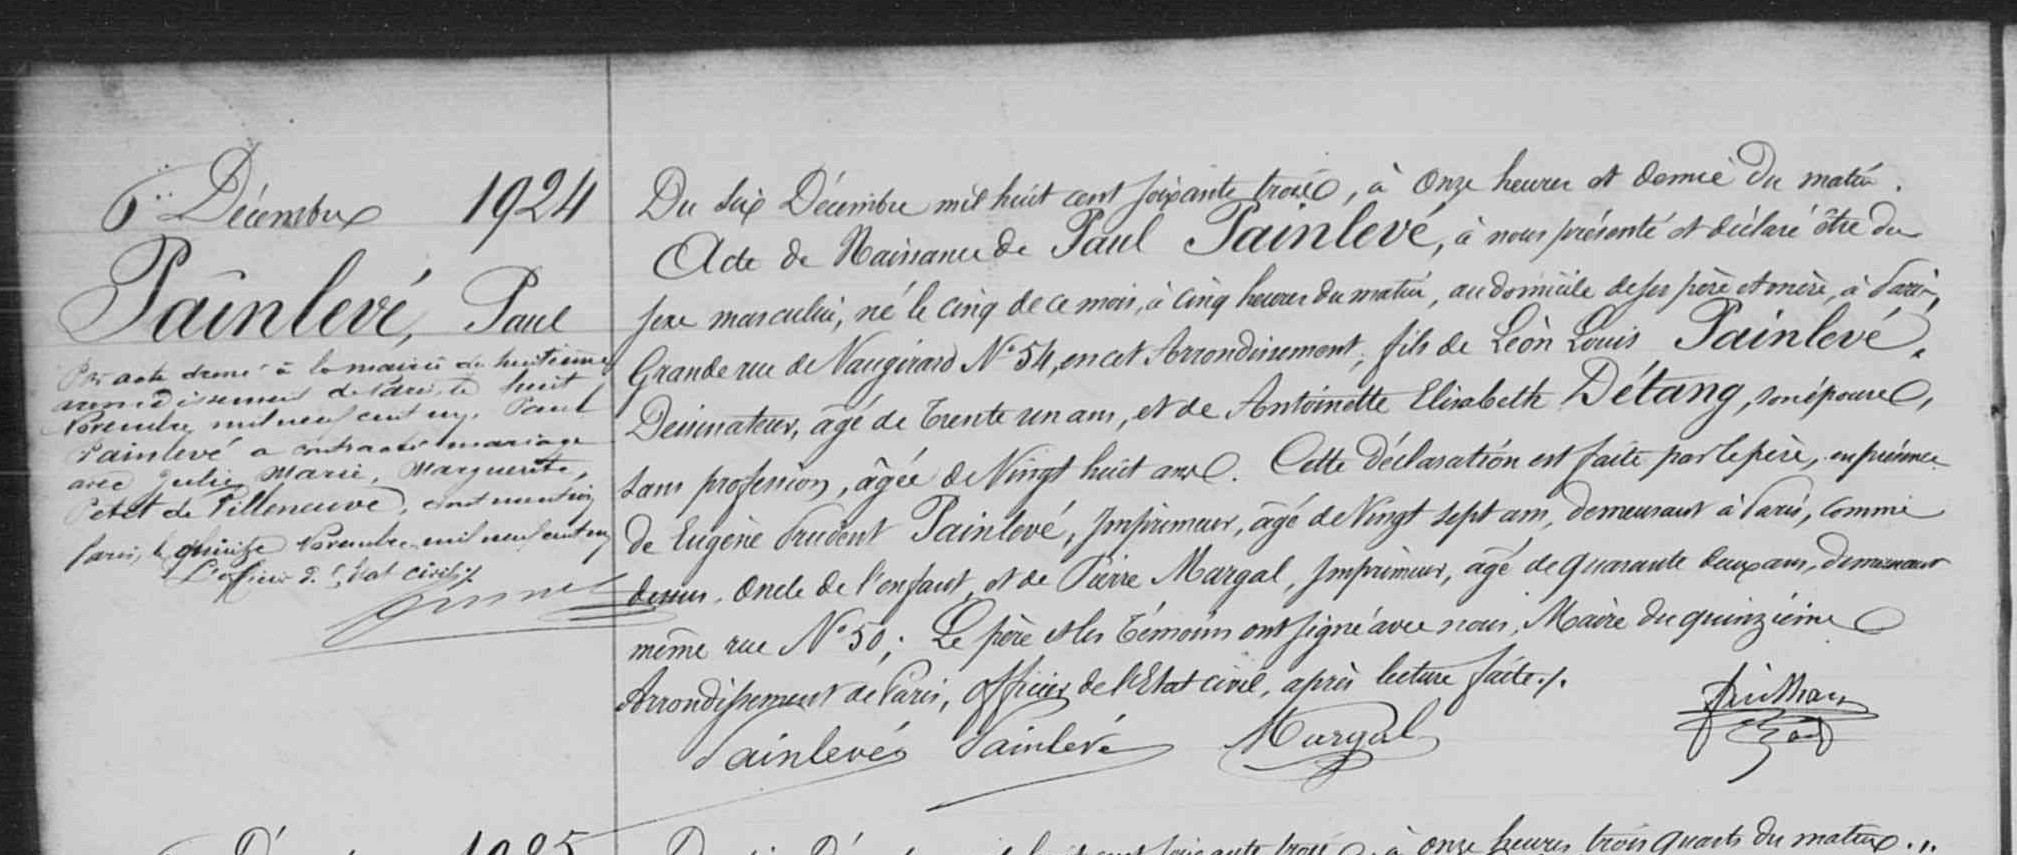 6 Décembre 1924
Painlevé, Paul
Par acte dressé à la mairie du huitième
arrondissement de Paris, le huit
Novembre mil neuf cent un, Paul
Painlevé a contracté mariage
avec Julie, Marie, Marguerite,
Petit de Villeneuve, dont mention
Paris, le quinze Novembre mil neuf cent un
L'officier d. l'Etat civil ./.
Du Six Décembre mil huit cent soixante trois, à Onze heures et demie du matin.
Acte de Naissance de Paul Painlevé, à nous présenté et déclaré être du
sexe masculin, né le cinq de ce mois, à cinq heures du matin, au domicile de ses père et mère, à Paris,
Grande rue de Vaugirard N° 54, en cet Arrondissement, fils de Léon Louis Painlevé,
Dessinateur, âgé de Trente un ans, et de Antoinette Elisabeth Détang, son épouse,
sans profession, âgée de Vingt huit ans. Cette déclaration est faite par le père, en présence
de Eugène Prudent Painlevé, Imprimeur, âgé de Vingt sept ans, demeurant à Paris, comme
dessus, Oncle de l'enfant, et de Pierre Margal, Imprimeur, âgé de quarante deux ans, demeurant
même rue N° 50; Le père et les Témoins ont signé avec nous, Maire du quinzième
Arrondissement de Paris, Officier de l'Etat civil, après lecture faite./.
Painlevé Painlevé Margal
1925
à onze heures trois quarts du matin.